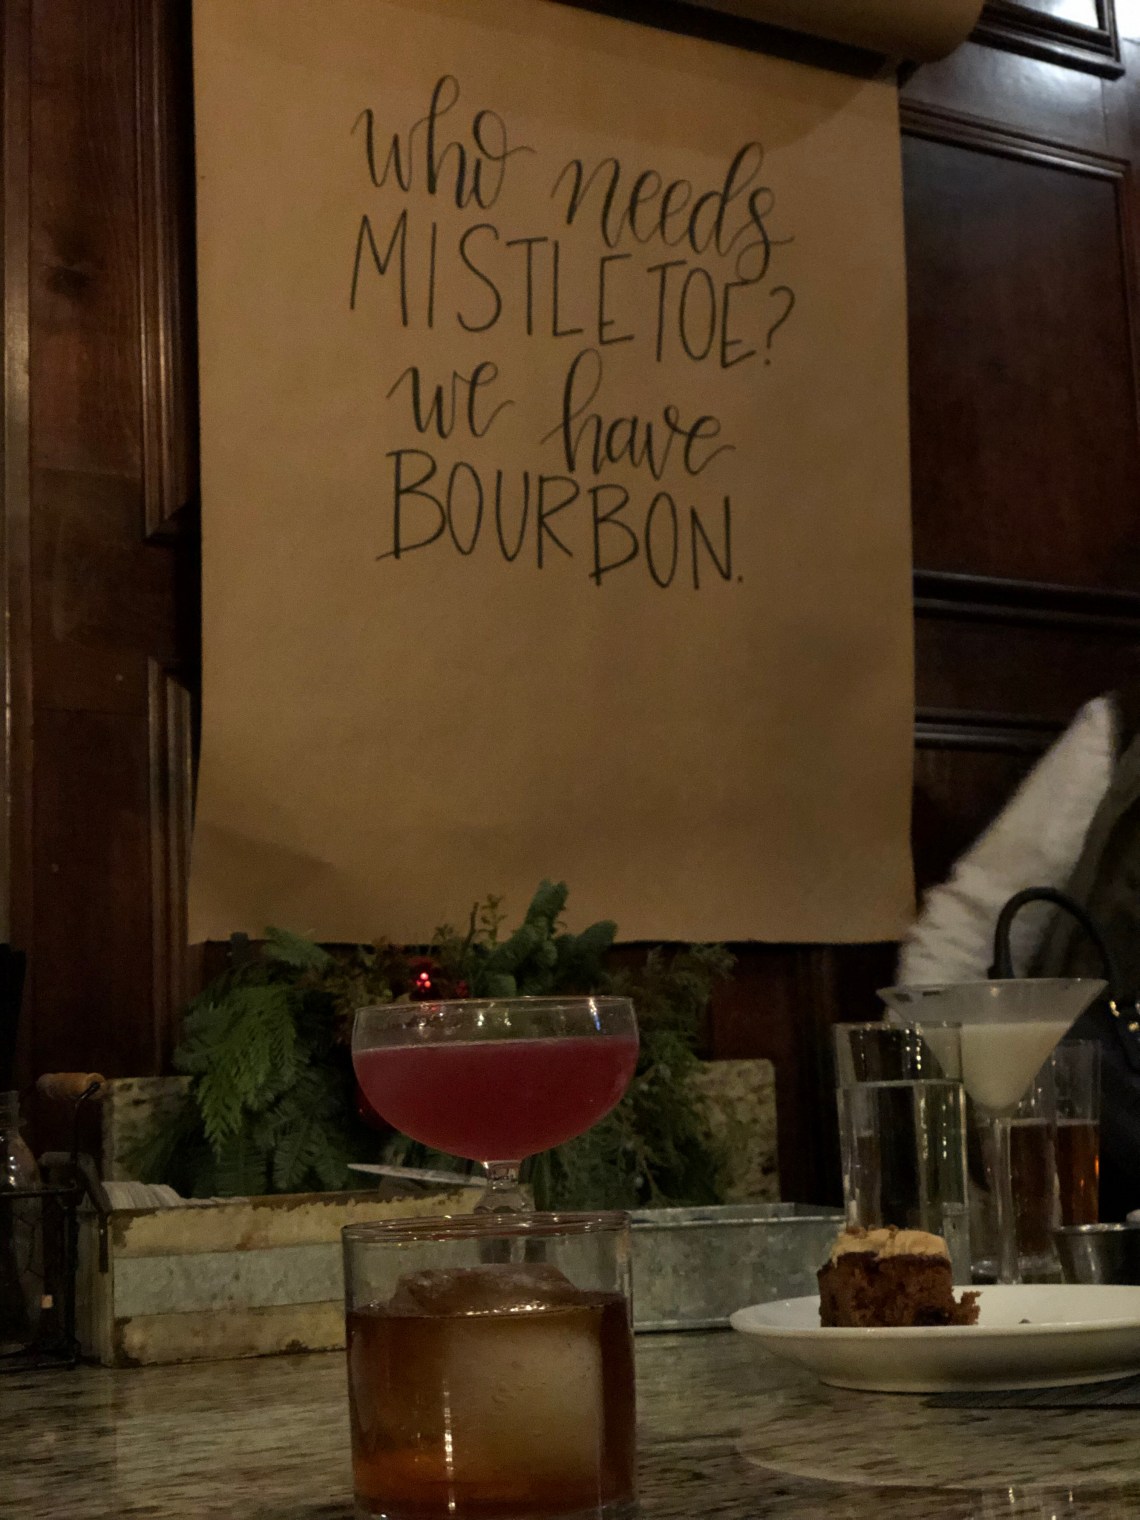 who needs
MISTLETOE?
we have
BOURBON.